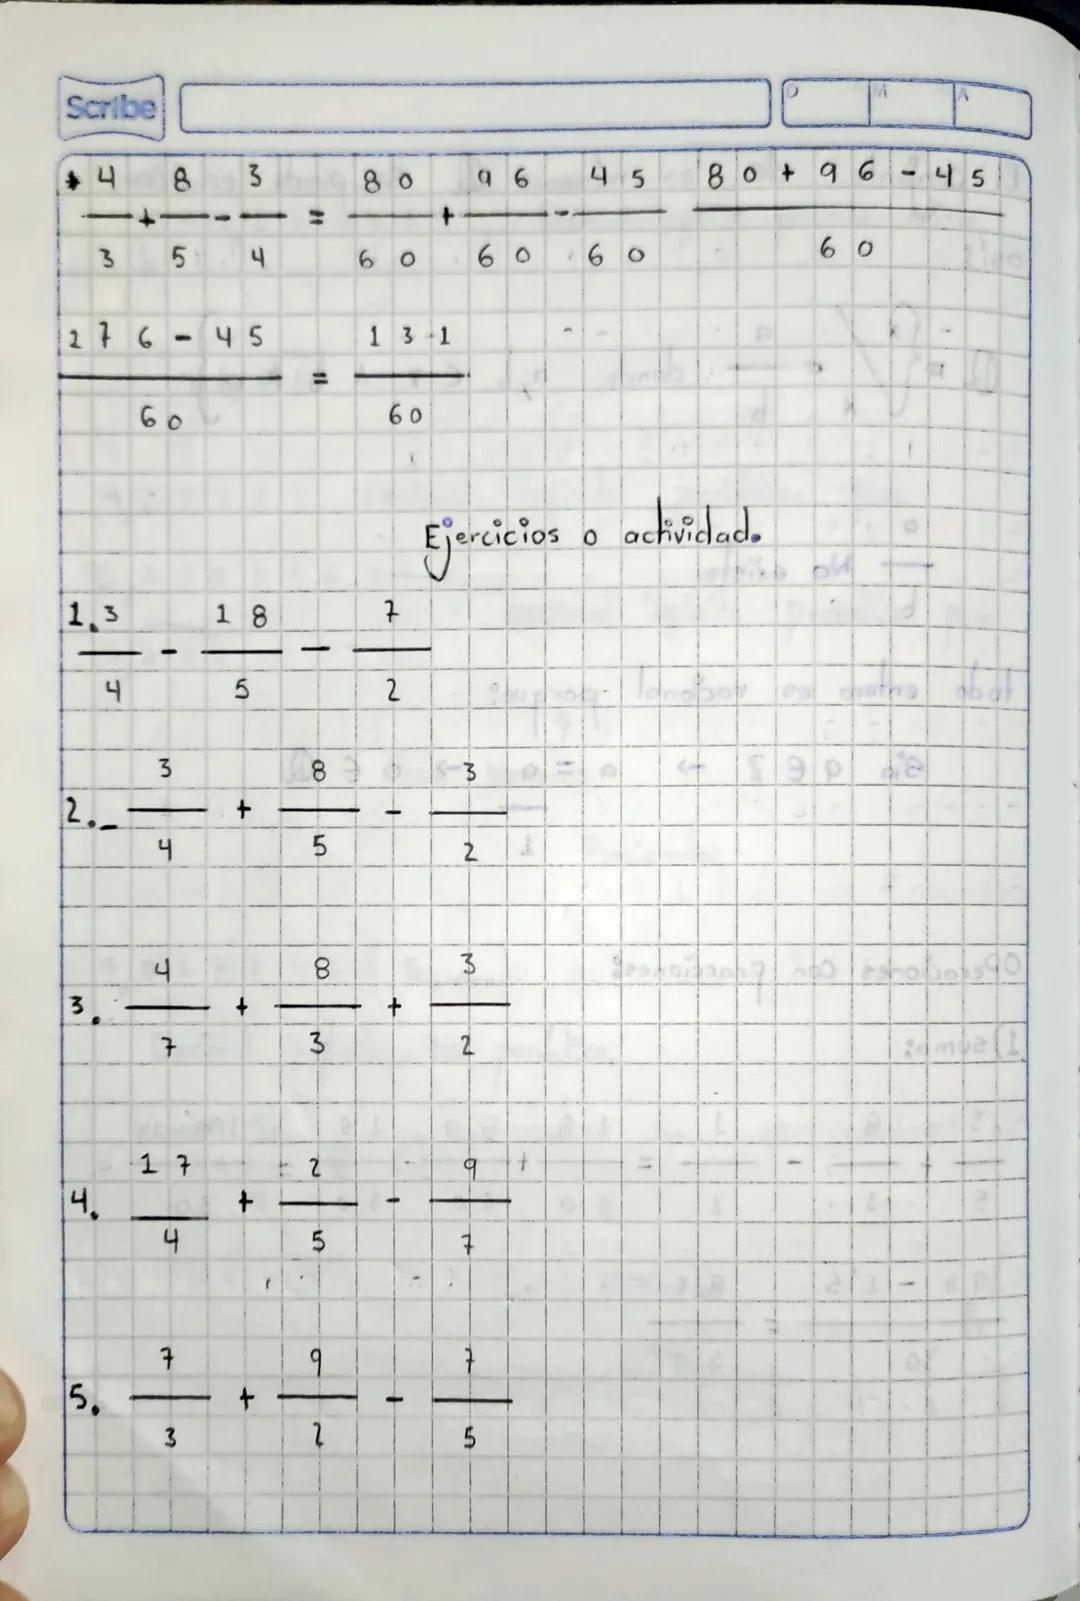 Scribe D M A
* 4/3 + 8/5 - 3/4 = 80/60 + 96/60 - 45/60 80+96-45/60
276-45/60 = 131/60
Ejercicios o actividad.
1. 3/4 - 18/5 - 7/2
2._ 3/4 + 8/5 - 3/2
3. 4/7 + 8/3 + 3/2
4. 17/4 + 2/5 - 9/7
5. 7/3 + 9/2 - 7/5